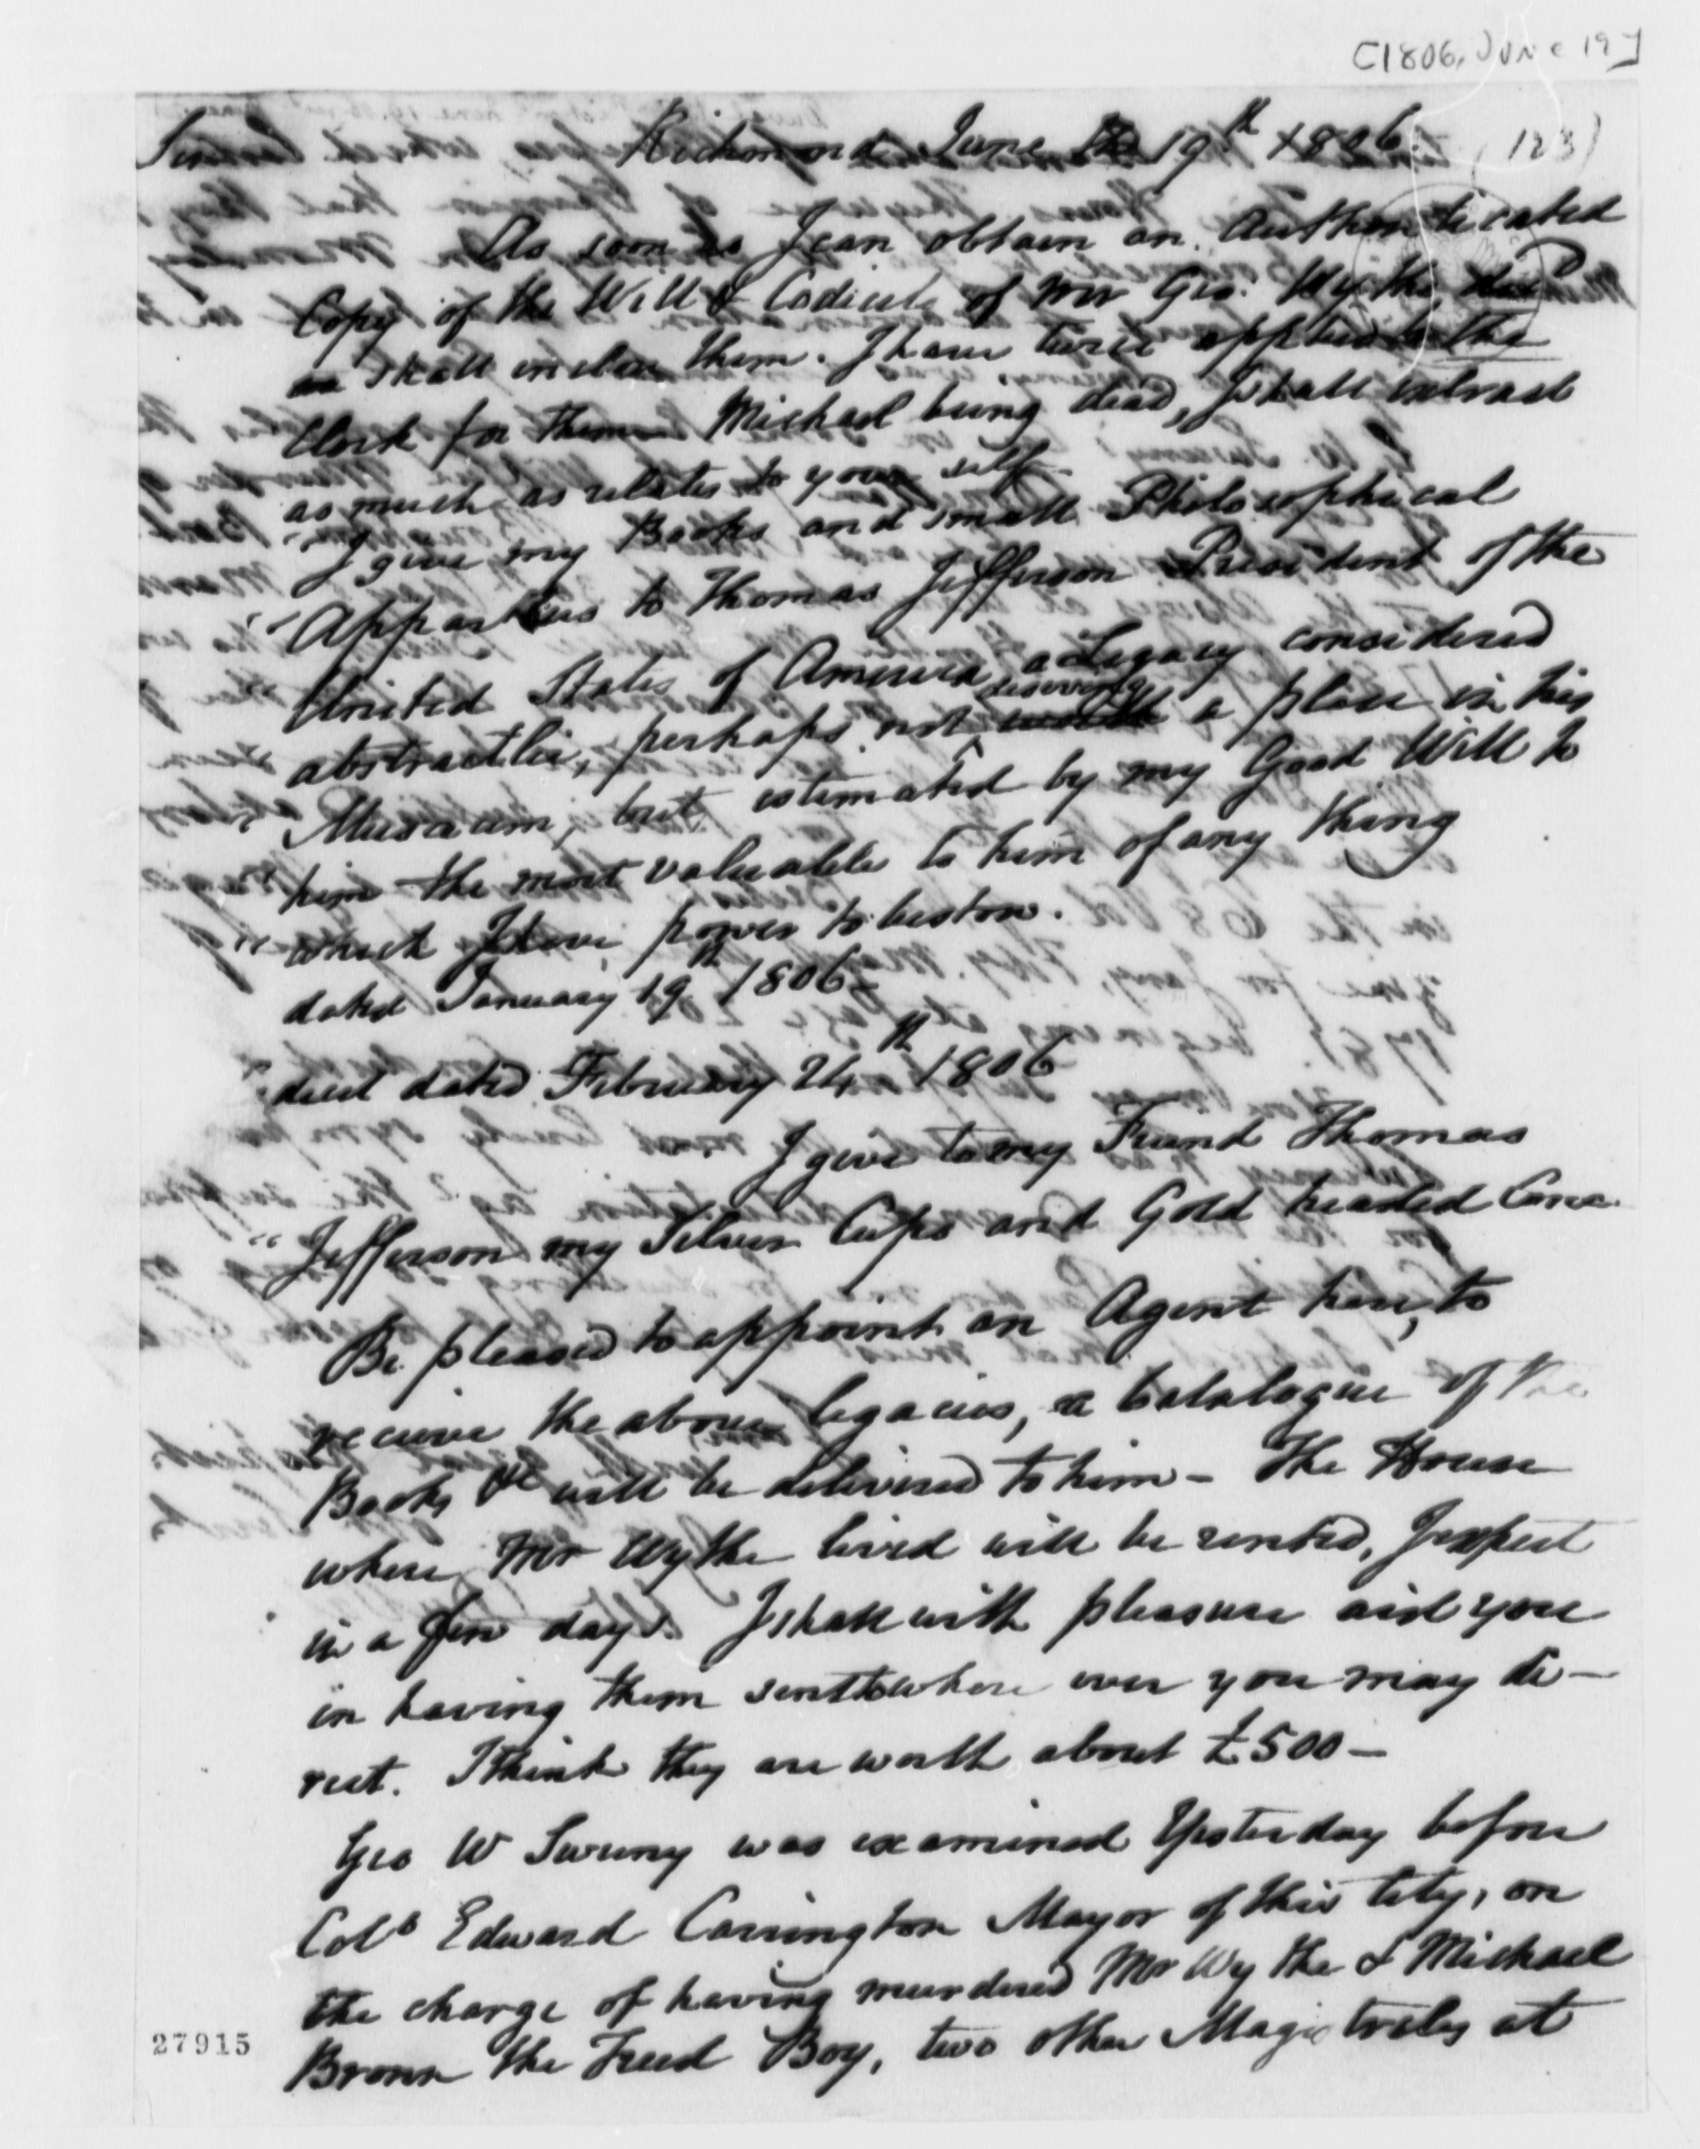 [1806, June 19]
Sir Richmond June 19th 1806. (123)
As soon as I can obtain an Authenticated
Copy of the Will & Codicils of Mr Geo. Wythe decd
shall inclose them. I have twice applied to the
Clerk for them Michael being dead, I shall extract
as much as relates to your self.
"I give my Books and small Philosophical
"Apparatus to Thomas Jefferson President of the
"United States of America a Legacy considered
abstractlie, perhaps not deserving a place in his
"Musaeum, but estimated by my Good Will to
"him the most valuable to him of any thing
"which I have power to bestow.
dated January 19th 1806–
dicil dated February 24th 1806
I give to my Friend Thomas
"Jefferson my Silver Cups and Gold headed Cane.
Be pleased to appoint an Agent here, to
receive the above legacies, a Catalogue of the
Books &c will be delivered to him – The House
where Mr Wythe lived will be rented, I expect
in a few days. I shall with pleasure aid you
in having them sent to where ever you may di–
rect. I think they are worth about £500 –
Geo W Sweny was examined Yesterday before
Colo Edward Carrington Mayor of this City, on
the charge of having murdered Mr Wythe & Michael
Brown the Freed Boy, two other Magistrates at
27915